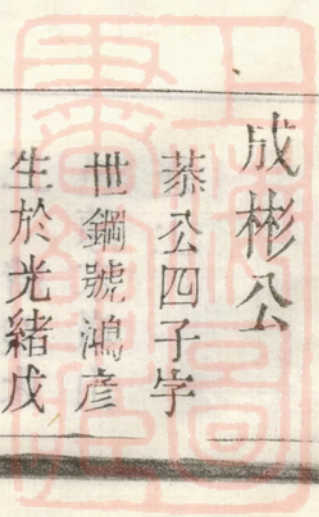 成彬公
恭公四子字
世鋼號鴻彥
生於光緒戊